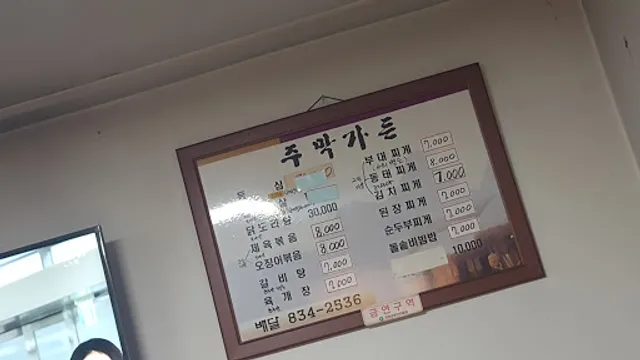 주막가든
등 심
삼
닭도리탕 30,000
제육볶음 8,000
오징어볶음 8,000
갈비탕 7,000
육개장 7,000
부대찌개 7,000
동태찌게 8,000
김치찌게 7,000
된장찌게 7,000
순두부찌게 7,000
돌솥비빔밥 7,000
10,000
배달 834-2536
금연구역